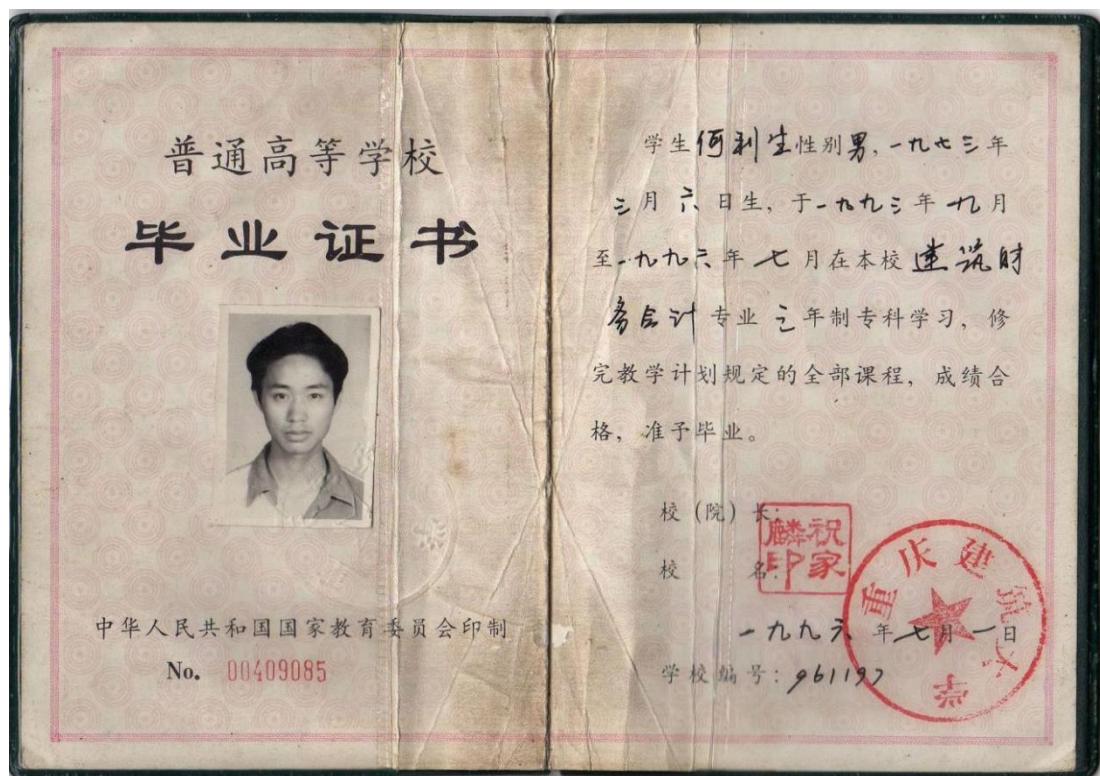 普通高等学校
毕业证书
中华人民共和国国家教育委员会印制
No. 00409085
学生何利生性别男,一九七三年
三月六日生,于一九九三年九月
至一九九六年七月在本校建筑财
务会计专业三年制专科学习,修
完教学计划规定的全部课程,成绩合
格,准予毕业。
校(院)长:
祝家麟印
校 名:
重庆建筑大学
一九九六年七月一日
学校编号:961197